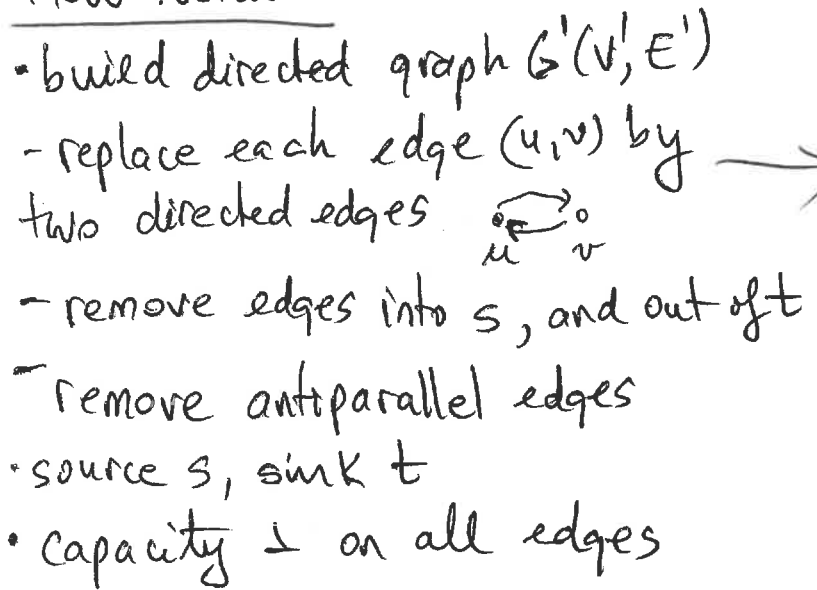 • build directed graph G'(V', E')
- replace each edge (u,v) by
two directed edges
u v
- remove edges into s, and out of t
- remove antiparallel edges
• source s, sink t
• capacity 1 on all edges